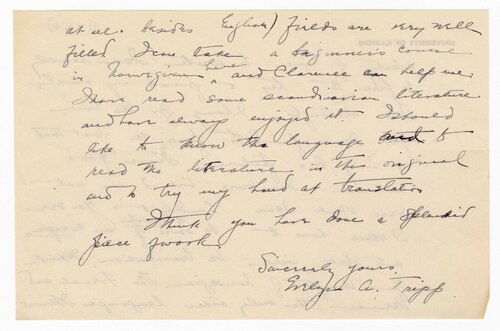 at all. besides English) fields are very well
filled I can take a beginners course
in Norwegian here and Clarence can help me.
I have read some scandinavian literature
and have always enjoyed it. I should
like to know the language and to
read the literature in the original
and to try my hand at translation
I think you have done a splendid
piece of work.
Sincerely yours,
Evelyn A. Tripp
UNIVERSITY OF ILLINOIS